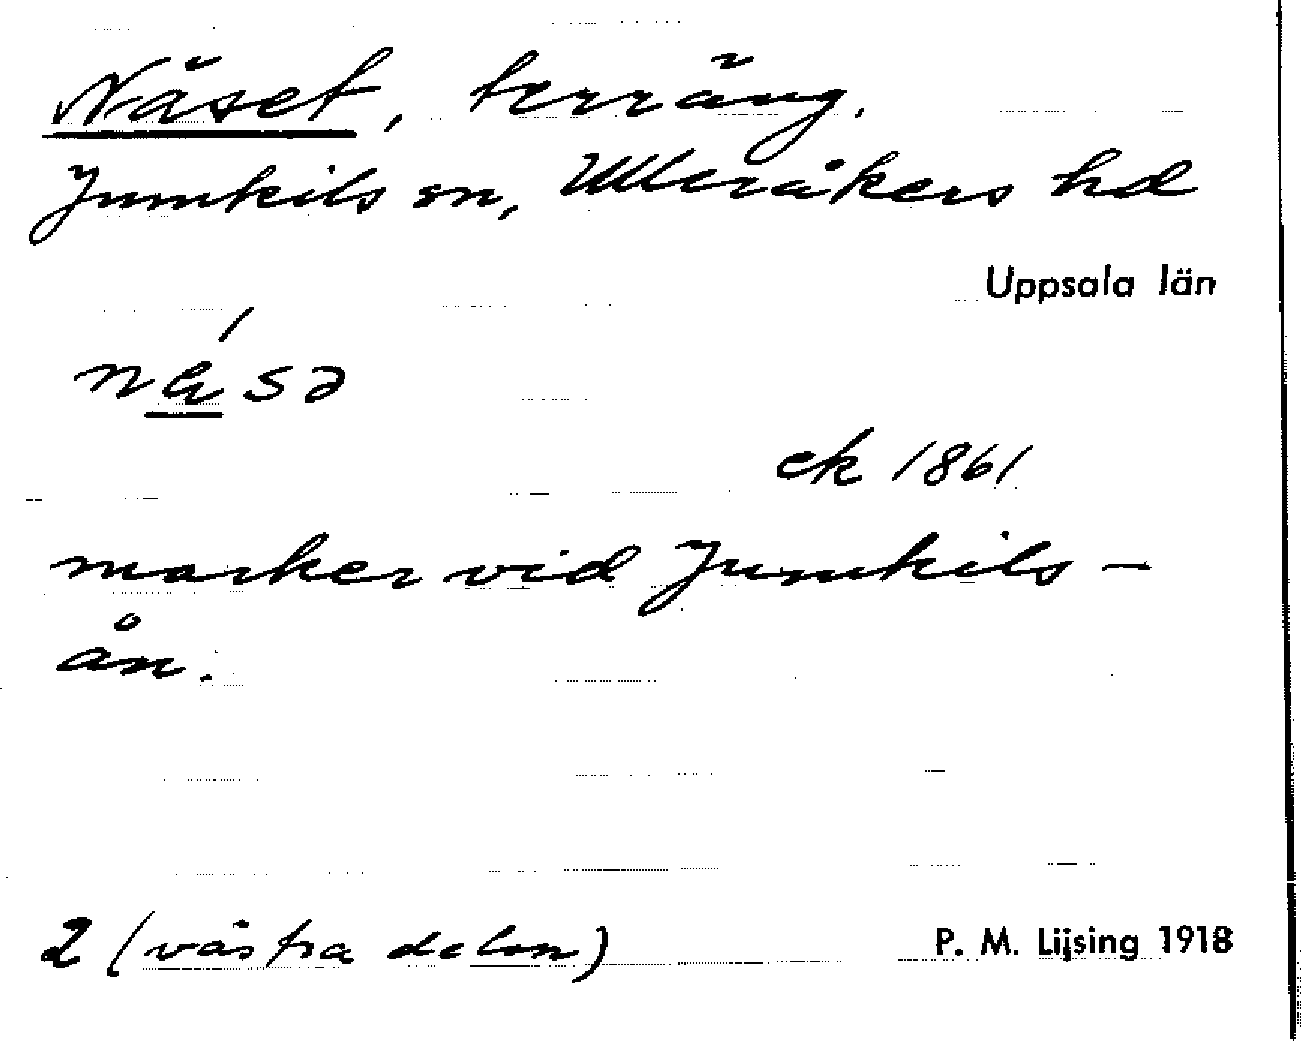 Näset, terräng.
Jumkils sn, Ulleråkers hd
Uppsala län
næ´sə
ek 1861
marker vid Jumkils-
ån.
2 (västra delen)
P. M. Lijsing 1918